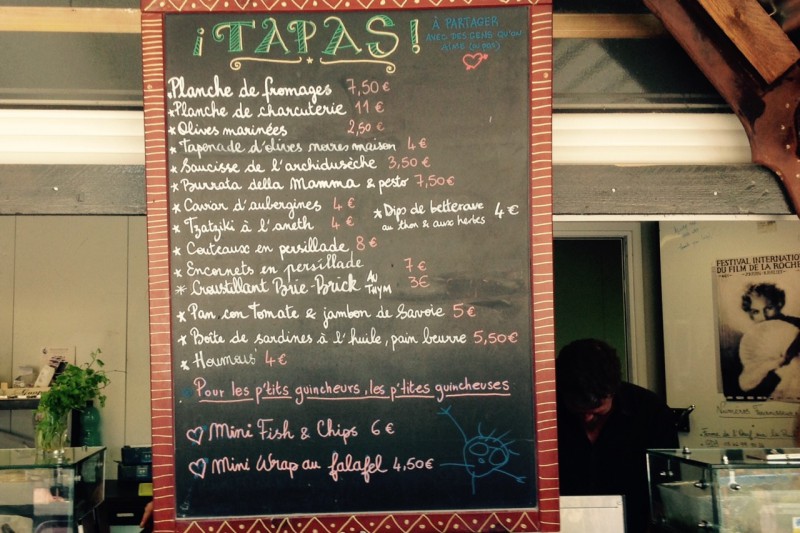 ¡TAPAS!
À PARTAGER
AVEC DES GENS QU'ON
AIME (OU PAS)
Planche de fromages 7,50€
* Planche de charcuterie 11 €
* Olives marinées 2,50 €
* Tapenade d'olives noires maison 4 €
* Saucisse de l'archiduschèche 3,50 €
* Burrata della Mamma & pesto 7,50€
* Caviar d'aubergines 4 €
* Tzatziki à l'aneth 4 €
* Dips de betterave 4 €
au thon & aux herbes
* Couteaux en persillade 8 €
* Encornets en persillade 7 €
* Croustillant Brie-Brick AU THYM 3€
* Pan con Tomate & jambon de Savoie 5 €
* Boîte de sardines à l'huile, pain beurre 5,50€
* Houmous 4 €
Pour les p'tits guincheurs, les p'tites guincheuses
Mini Fish & Chips 6 €
Mini Wrap au falafel 4,50€
FESTIVAL INTERNATION
DU FILM DE LA ROCHE